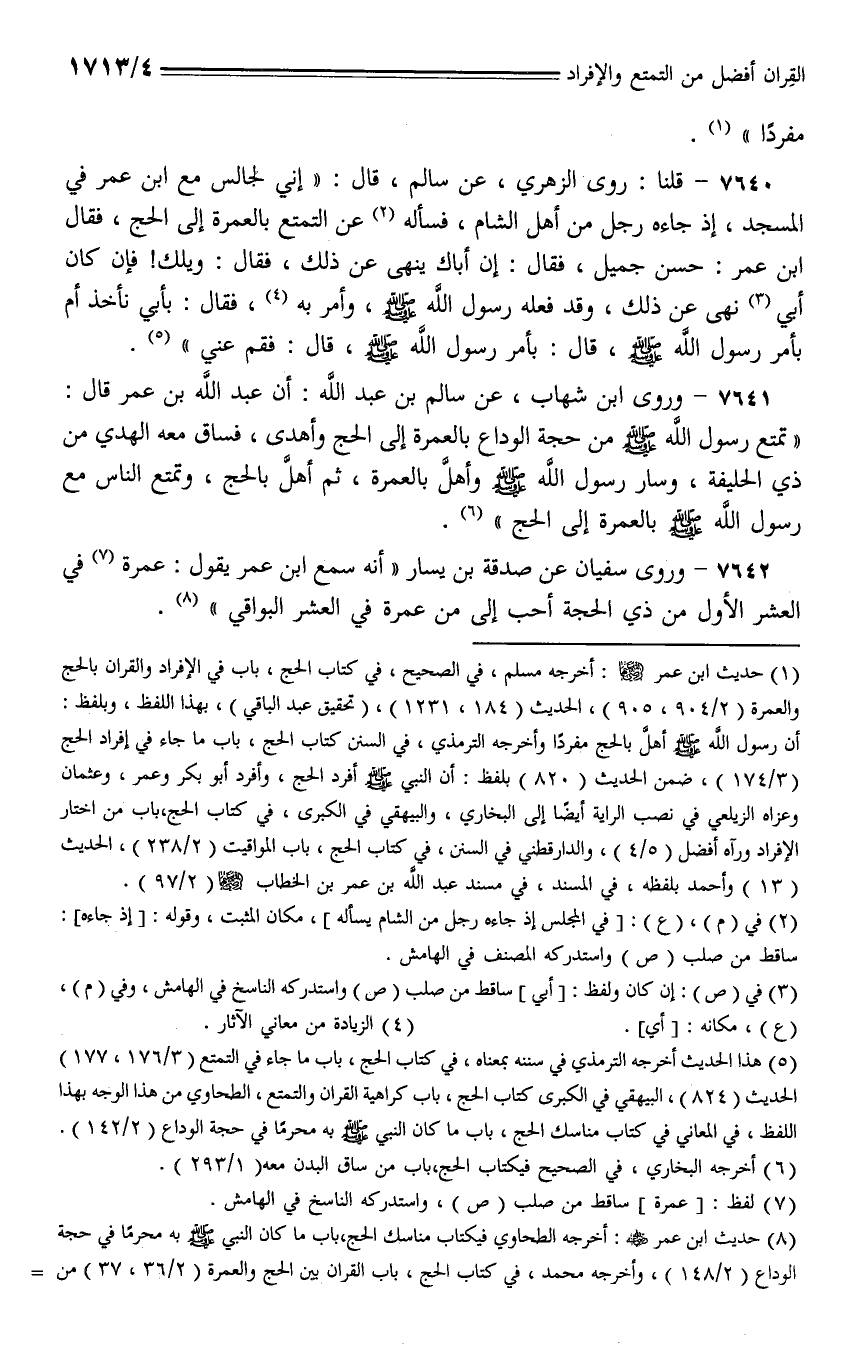 القِران أفضل من التمتع والإفراد ١٧١٣/٤
مفردًا » (١) .
٧٦٤٠ - قلنا : روى الزهري ، عن سالم ، قال : « إني لجالس مع ابن عمر في
المسجد ، إذ جاءه رجل من أهل الشام ، فسأله (٢) عن التمتع بالعمرة إلى الحج ، فقال
ابن عمر : حسن جميل ، فقال : إن أباك ينهى عن ذلك ، فقال : ويلك! فإن كان
أبي (٣) نهى عن ذلك ، وقد فعله رسول اللَّه ﷺ ، وأمر به (٤) ، فقال : بأبي نأخذ أم
بأمر رسول اللَّه ﷺ ، قال : بأمر رسول اللَّه ﷺ ، قال : فقم عني » (٥) .
٧٦٤١ - وروى ابن شهاب ، عن سالم بن عبد اللَّه : أن عبد اللَّه بن عمر قال :
« تمتع رسول اللَّه ﷺ من حجة الوداع بالعمرة إلى الحج وأهدى ، فساق معه الهدي من
ذي الحليفة ، وسار رسول اللَّه ﷺ وأهلَّ بالعمرة ، ثم أهلَّ بالحج ، وتمتع الناس مع
رسول اللَّه ﷺ بالعمرة إلى الحج » (٦) .
٧٦٤٢ - وروى سفيان عن صدقة بن يسار « أنه سمع ابن عمر يقول : عمرة (٧) في
العشر الأول من ذي الحجة أحب إلى من عمرة في العشر البواقي » (٨) .
(١) حديث ابن عمر : أخرجه مسلم ، في الصحيح ، في كتاب الحج ، باب في الإفراد والقران بالحج
والعمرة ( ٩٠٤/٢ ، ٩٠٥ ) ، الحديث ( ١٨٤ ، ١٢٣١ ) ، ( تحقيق عبد الباقي ) ، بهذا اللفظ ، وبلفظ :
أن رسول اللَّه ﷺ أهلَّ بالحج مفردًا وأخرجه الترمذي ، في السنن كتاب الحج ، باب ما جاء في إفراد الحج
( ١٧٤/٣ ) ، ضمن الحديث ( ٨٢٠ ) بلفظ : أن النبي ﷺ أفرد الحج ، وأفرد أبو بكر وعمر ، وعثمان
وعزاه الزيلعي في نصب الراية أيضًا إلى البخاري ، والبيهقي في الكبرى ، في كتاب الحج،باب من اختار
الإفراد ورآه أفضل ( ٤/٥ ) ، والدارقطني في السنن ، في كتاب الحج ، باب المواقيت ( ٢٣٨/٢ ) ، الحديث
( ١٣ ) وأحمد بلفظه ، في المسند ، في مسند عبد اللَّه بن عمر بن الخطاب ( ٩٧/٢ ) .
(٢) في ( م ) ، ( ع ) : [ في المجلس إذ جاءه رجل من الشام يسأله ] ، مكان المثبت ، وقوله : [ إذ جاءه] :
ساقط من صلب ( ص ) واستدركه المصنف في الهامش .
(٣) في ( ص ) : إن كان ولفظ : [ أبي ] ساقط من صلب ( ص ) واستدركه الناسخ في الهامش ، وفي ( م ) ،
( ع ) ، مكانه : [ أي] . (٤) الزيادة من معاني الآثار .
(٥) هذا الحديث أخرجه الترمذي في سننه بمعناه ، في كتاب الحج ، باب ما جاء في التمتع ( ١٧٦/٣ ، ١٧٧ )
الحديث ( ٨٢٤ ) ، البيهقي في الكبرى كتاب الحج ، باب كراهية القران والتمتع ، الطحاوي من هذا الوجه بهذا
اللفظ ، في المعاني في كتاب مناسك الحج ، باب ما كان النبي ﷺ به محرمًا في حجة الوداع ( ١٤٢/٢ ) .
(٦) أخرجه البخاري ، في الصحيح فيكتاب الحج،باب من ساق البدن معه( ٢٩٣/١ ) .
(٧) لفظ : [ عمرة ] ساقط من صلب ( ص ) ، واستدركه الناسخ في الهامش .
(٨) حديث ابن عمر : أخرجه الطحاوي فيكتاب مناسك الحج،باب ما كان النبي ﷺ به محرمًا في حجة
الوداع ( ١٤٨/٢ ) ، وأخرجه محمد ، في كتاب الحج ، باب القران بين الحج والعمرة ( ٣٦/٢ ، ٣٧ ) من =